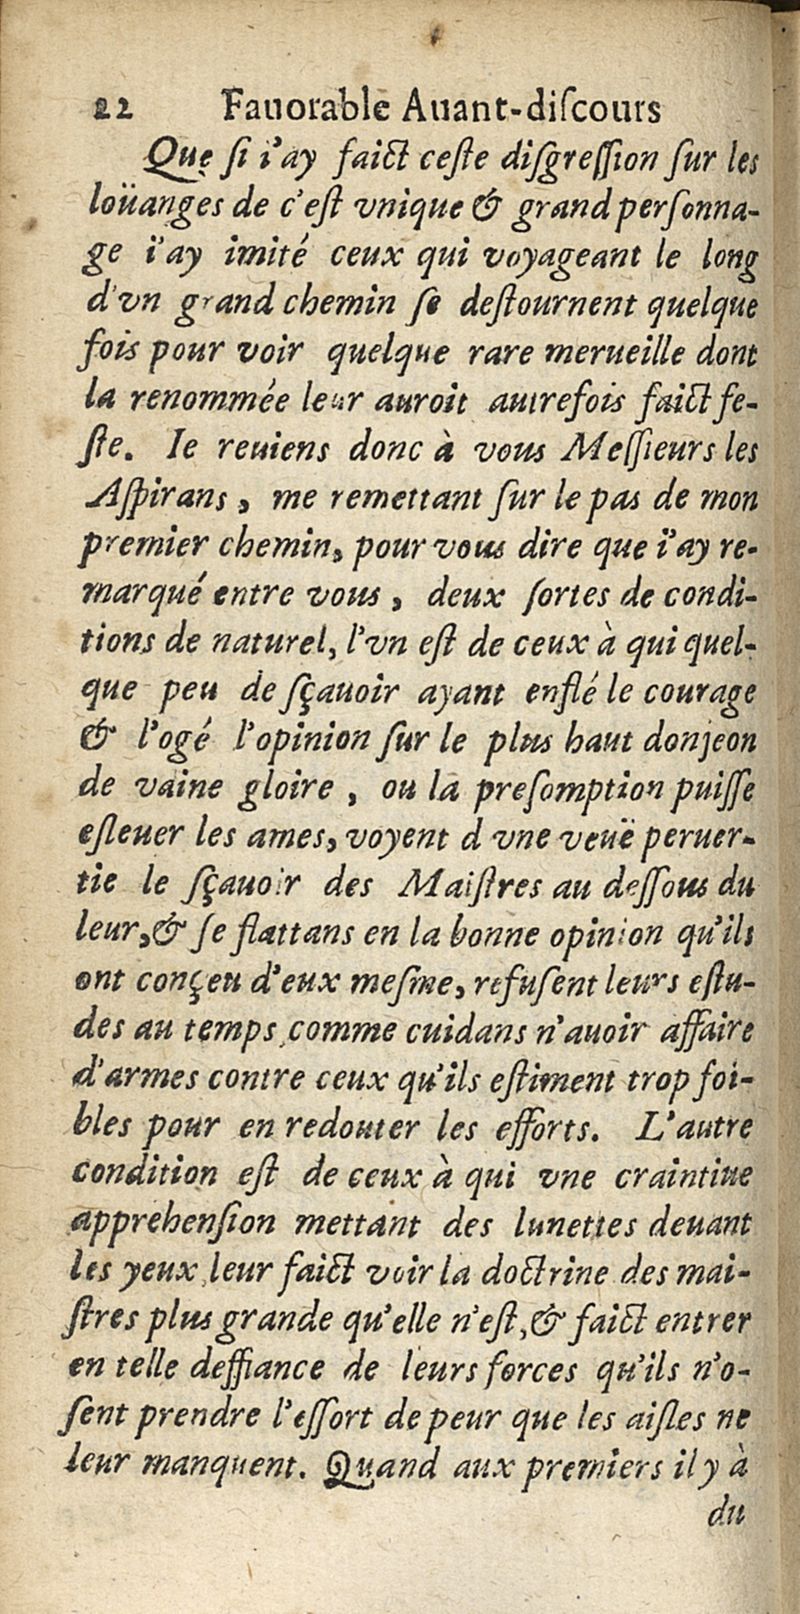 22 Fauorable Auant-diſcours
Que ſi i'ay faict ceſte diſgreſſion ſur les
loüanges de c'eſt vnique & grand perſonna-
ge i'ay imité ceux qui voyageant le long
d'vn grand chemin ſe deſtournent quelque
fois pour voir quelque rare merueille dont
la renommée leur auroit autrefois faict fe-
ſte. Ie reuiens donc à vous Meſſieurs les
Aſpirans, me remettant ſur le pas de mon
premier chemin, pour vous dire que i'ay re-
marqué entre vous, deux ſortes de condi-
tions de naturel, l'vn eſt de ceux à qui quel-
que peu de ſçauoir ayant enflé le courage
& l'ogé l'opinion ſur le plus haut donjeon
de vaine gloire, ou la preſomption puiſſe
eſleuer les ames, voyent d vne veuë peruer-
tie le ſçauoir des Maiſtres au deſſous du
leur, & ſe flattans en la bonne opinion qu'ils
ont conçeu d'eux meſme, refuſent leurs eſtu-
des au temps, comme cuidans n'auoir affaire
d'armes contre ceux qu'ils eſtiment trop foi-
bles pour en redouter les efforts. L'autre
condition eſt de ceux à qui vne craintiue
apprehenſion mettant des lunettes deuant
les yeux, leur faict voir la doctrine des mai-
ſtres plus grande qu'elle n'eſt, & faict entrer
en telle deffiance de leurs forces qu'ils n'o-
ſent prendre l'eſſort de peur que les aiſles ne
leur manquent. Quand aux premiers il y à
du